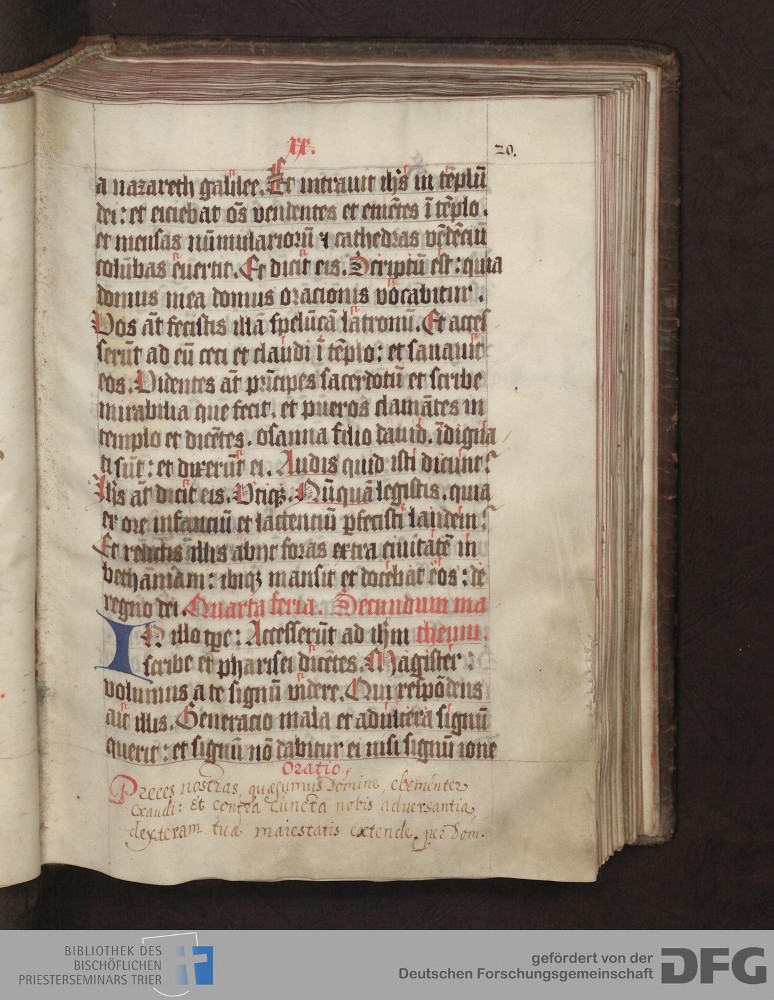 xx.
20.
a nazareth galilee. Et intrauit ih̄s in tēplū
dei: et eiciebat oēs vendentes et emētes ī tēplo.
et mensas nūmulariorū ⁊ cathedras vēdēciū
colūbas euertit. Et dicit eis. Scriptū est: quia
domus mea domus oracionis vocabitur.
Vos āt fecistis illā spelūcā latronū. Et acces
serūt ad eū ceci et claudi ī tēplo: et sanauit
eos. Videntes āt prīcipes sacerdotū et scribe
mirabilia que fecit. et pueros clamātes in
templo et dicētes. osanna filio dauid. īdigna
ti sūt: et dixerūt ei. Audis quid isti dicunt?
Ih̄s āt dicit eis. Vtiqꝫ. Nūquā legistis. quia
ex ore infanciū et lactenciū ꝑfecisti laudem?
Et relictis illis abijt foras extra ciuitatē in
bethaniam: ibiqꝫ mansit et docebat eos: de
regno dei. Quarta feria. Secundum ma
IN illo tꝑe: Accesserūt ad ih̄m theum.
scribe et pharisei dicētes. Magister:
volumus a te signū videre. Qui respōdens
ait illis. Generacio mala et adultera signū
querit: et signū nō dabitur ei nisi signū ione
Oratio.
Preces nostras, quæsumus Domine, clementer
exaudi: Et contra cuncta nobis adversantia,
dexteram tuæ maiestatis extende. per Dom.
BIBLIOTHEK DES
BISCHÖFLICHEN
PRIESTERSEMINARS TRIER
gefördert von der
Deutschen Forschungsgemeinschaft
DFG